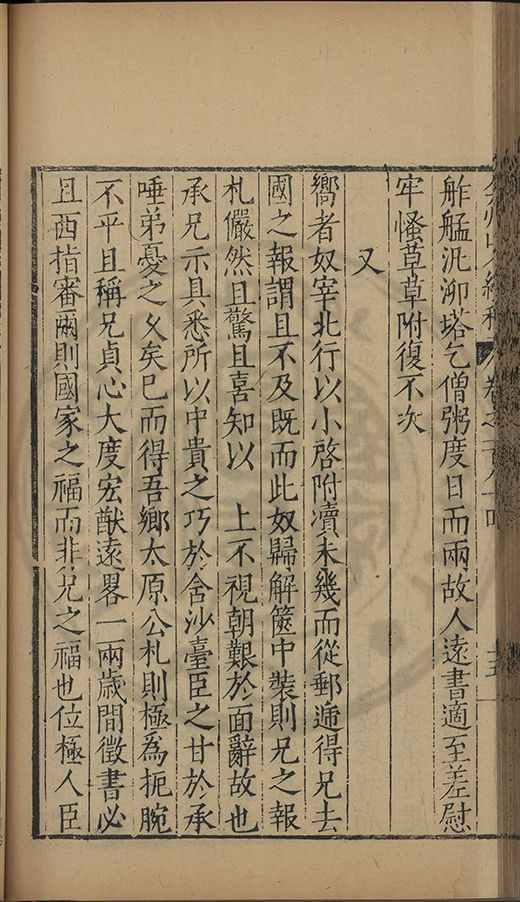 舴艋汎泖塔乞僧粥度日而兩故人遠書適至差慰
牢慅草草附復不次
又
嚮者奴宰北行以小啓附瀆未幾而從郵遞得兄去
國之報謂且不及旣而此奴歸解篋中裝則兄之報
札儼然且驚且喜知以　上不視朝艱於面辭故也
承兄示具悉所以中貴之巧於舍沙臺臣之甘於承
唾弟憂之久矣已而得吾鄉太原公札則極為扼腕
不平且稱兄貞心大度宏猷遠畧一兩歲間徵書必
且西指審爾則國家之福而非兄之福也位極人臣